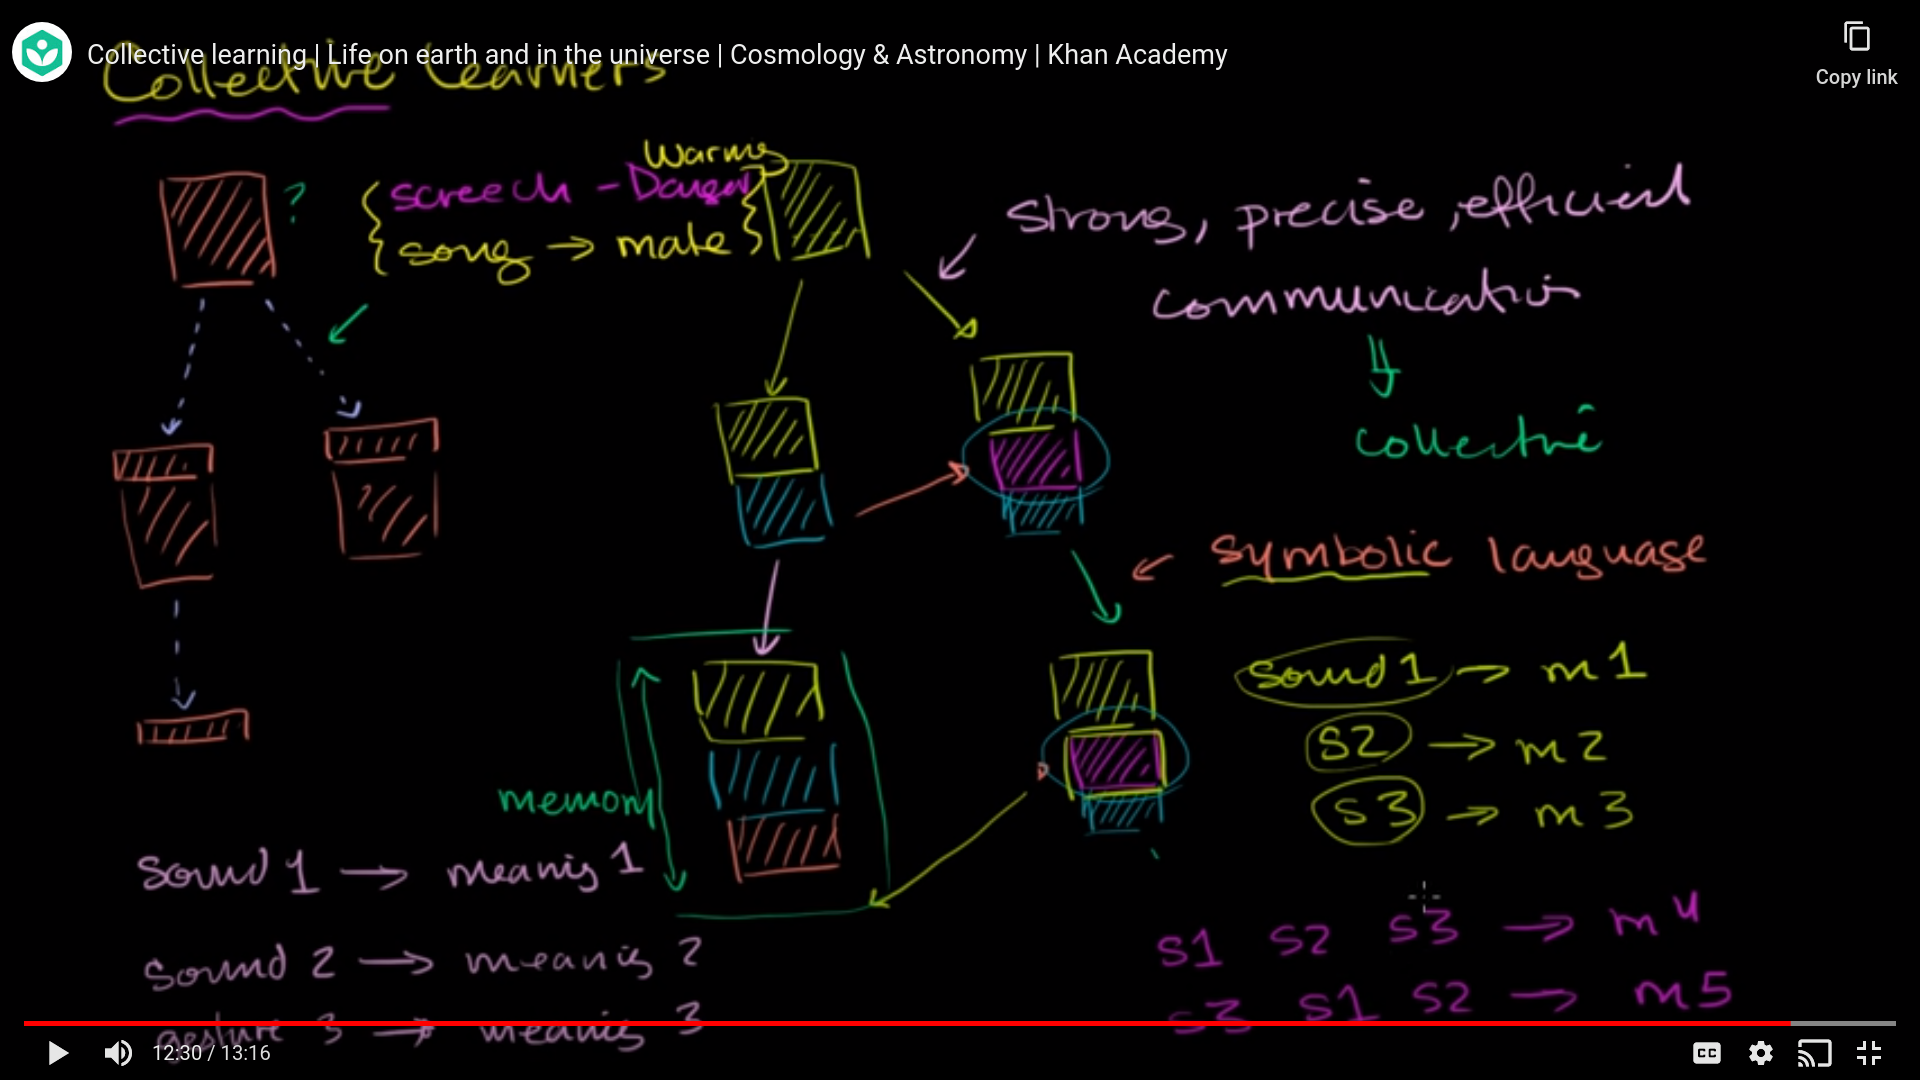 Collective learning | Life on earth and in the universe | Cosmology & Astronomy | Khan Academy
Copy link
Collective Learners
Warning
screech - Danger
song → mate
?
strong, precise, efficient
communication
collective
symbolic language
sound 1 → m1
s2 → m2
s3 → m3
memory
sound 1 → meaning 1
sound 2 → meaning 2
gesture 3 → meaning 3
s1 s2 s3 → m4
s3 s1 s2 → m5
12:30 / 13:16
CC